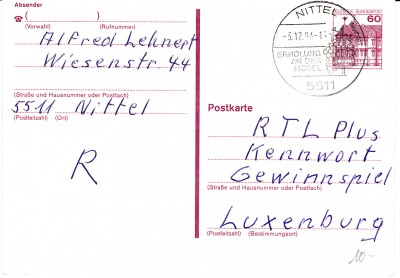 Absender
☎ ( )
(Vorwahl) (Rufnummer)
Alfred Lehnert
Wiesenstr 44
(Straße und Hausnummer oder Postfach)
5511 Nittel
(Postleitzahl) (Ort)
R
NITTEL
ERHOLUNG
AN DER
MOSEL
5511
DEUTSCHE BUNDESPOST
60
Postkarte
RTL Plus
Kennwort
Gewinnspiel
(Straße und Hausnummer oder Postfach)
Luxenburg
(Postleitzahl) (Bestimmungsort)
10-